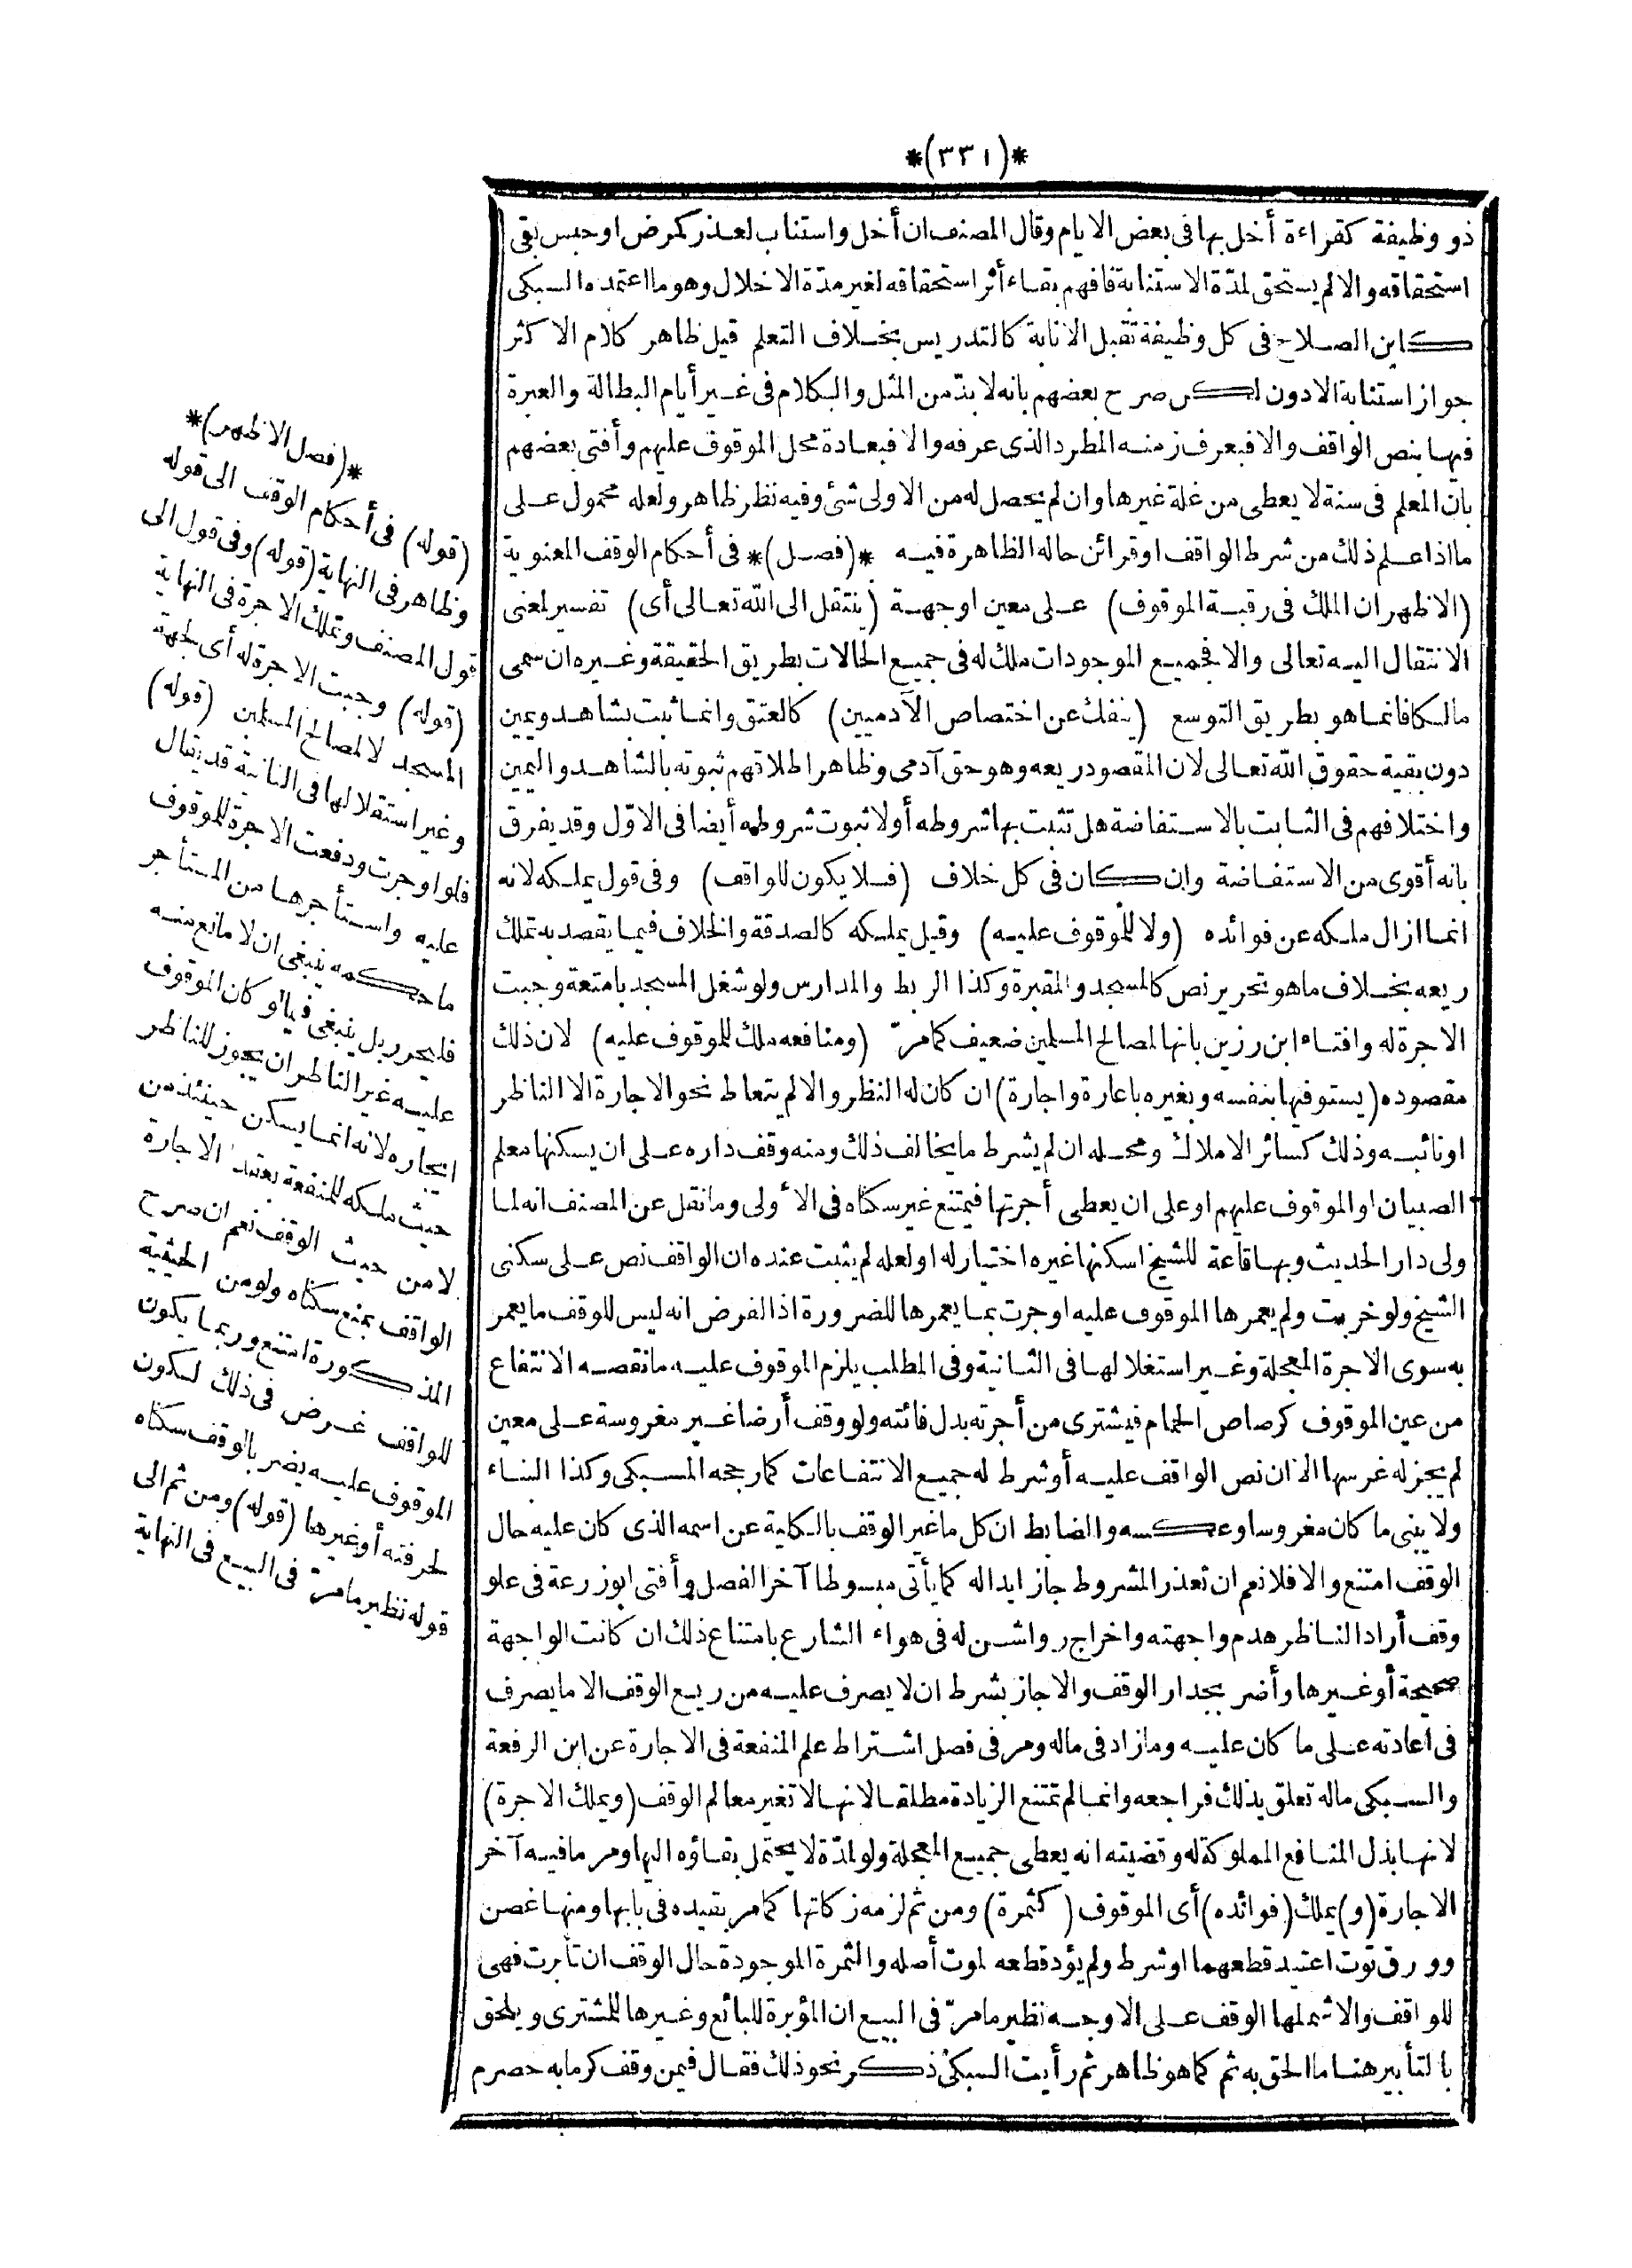 *(٣٣١)*
ذو وظيفة كقراءة أخل بها فى بعض الايام وقال المصنف ان أخل واستناب لعذر كمرض او حبس بقى
استحقاقه والا لم يستحق لمدّة الاستنابة فافهم بقاء أثر استحقاقه لغير مدّة الاخلال وهو ما اعتمده السبكى
كابن الصلاح فى كل وظيفة تقبل الانابة كالتدريس بخلاف التعلم قيل ظاهر كلام الاكثر
جواز استنابة الادون لكن صرح بعضهم بانه لا بدّ من المثل والكلام فى غير أيام البطالة والعبرة
فيها بنص الواقف والا فبعرف زمنه المطرد الذى عرفه والا فبعادة محل الموقوف عليهم وأفتى بعضهم
بان المعلم فى سنة لا يعطى من غلة غيرها وان لم يحصل له من الاولى شئ وفيه نظر ظاهر ولعله محمول على
ما اذا علم ذلك من شرط الواقف او قرائن حاله الظاهرة فيه *(فصل)* فى أحكام الوقف المعنوية
(الاظهر ان الملك فى رقبة الموقوف) على معين او جهة (ينتقل الى الله تعالى أى) تفسير لمعنى
الانتقال اليه تعالى والا فجميع الموجودات ملك له فى جميع الحالات بطريق الحقيقة وغيره ان سمى
مالكا فانما هو بطريق التوسع (ينفك عن اختصاص الآدميين) كالعتق وانما ثبت بشاهد ويمين
دون بقية حقوق الله تعالى لان المقصود ريعه وهو حق آدمى وظاهر اطلاقهم ثبوته بالشاهد واليمين
واختلافهم فى الثابت بالاستفاضة هل تثبت بها شروطه أولا ثبوت شروطه أيضا فى الاوّل وقد يفرق
بانه أقوى من الاستفاضة وان كان فى كل خلاف (فلا يكون للواقف) وفى قول يملكه لانه
انما ازال ملكه عن فوائده (ولا للموقوف عليه) وقيل يملكه كالصدقة والخلاف فيما يقصد به تملك
ريعه بخلاف ما هو تحرير نص كالمسجد والمقبرة وكذا الربط والمدارس ولو شغل المسجد بامتعة وجبت
الاجرة له وافتاء ابن رزين بانها لمصالح المسلمين ضعيف كما مرّ (ومنافعه ملك للموقوف عليه) لان ذلك
مقصوده (يستوفيها بنفسه وبغيره باعارة واجارة) ان كان له النظر والا لم يتعاط نحو الاجارة الا الناظر
او نائبه وذلك كسائر الاملاك ومحله ان لم يشرط ما يخالف ذلك ومنه وقف داره على ان يسكنها معلم
الصبيان او الموقوف عليهم او على ان يعطى أجرتها فيمتنع غير سكناه فى الأولى وما نقل عن المصنف انه لما
ولى دار الحديث وبها قاعة للشيخ اسكنها غيره اختيار له او لعله لم يثبت عنده ان الواقف نص على سكنى
الشيخ ولو خربت ولم يعمرها الموقوف عليه او جرت بما يعمرها للضرورة اذ الفرض انه ليس للوقف ما يعمر
به سوى الاجرة المعجلة وغير استغلالها فى الثانية وفى المطلب يلزم الموقوف عليه ما نقصه الانتفاع
من عين الموقوف كرصاص الحمام فيشترى من أجرته بدل فائته ولو وقف أرضا غير مغروسة على معين
لم يجز له غرسها الا ان نص الواقف عليه أو شرط له جميع الانتفاعات كما رجحه السبكى وكذا البناء
ولا يبنى ما كان مغروسا وعكسه والضابط ان كل ما غير الوقف بالكلية عن اسمه الذى كان عليه حال
الوقف امتنع والا فلا نعم ان تعذر المشروط جاز ابداله كما يأتى مبسوطا آخر الفصل وأفتى ابو زرعة فى علو
وقف أراد الناظر هدم واجهته واخراج رواشن له فى هواء الشارع بامتناع ذلك ان كانت الواجهة
صحيحة أو غيرها وأضر بجدار الوقف والا جاز بشرط ان لا يصرف عليه من ريع الوقف الا ما يصرف
فى اعادته على ما كان عليه وما زاد فى ماله ومر فى فصل اشتراط علم المنفعة فى الاجارة عن ابن الرفعة
والسبكى ماله تعلق بذلك فراجعه وانما لم تمتنع الزيادة مطلقا لانها لا تغير معالم الوقف (ويملك الاجرة)
لانها بدل المنافع المملوكة له وقضيته انه يعطى جميع المعجلة ولو لمدّة لا يحتمل بقاؤه اليها ومر ما فيه آخر
الاجارة (و) يملك (فوائده) أى الموقوف (كثمرة) ومن ثم لزمه زكاتها كما مر بقيده فى بابها ومنها غصن
وورق توت اعتيد قطعهما او شرط ولم يؤد قطعه لموت أصله والثمرة الموجودة حال الوقف ان تأبرت فهى
للواقف والا شملها الوقف على الاوجه نظير ما مرّ فى البيع ان المؤبرة للبائع وغيرها للمشترى ويلحق
بالتأبير هنا ما الحق به ثم كما هو ظاهر ثم رأيت السبكى ذكر نحو ذلك فقال فيمن وقف كرما به حصرم
*(فصل الاظهر)*
(قوله) فى أحكام الوقف الى قوله
وظاهر فى النهاية (قوله) وفى قول الى
قول المصنف وتملك الاجرة فى النهاية
(قوله) وجبت الاجرة له أى لجهة
المسجد لا لمصالح المسلمين (قوله)
وغير استقلالها فى الثانية قد يقال
فلو اوجرت ودفعت الاجرة للموقوف
عليه واستأجرها من المستأجر
ما حكمه ينبغى ان لا مانع منه
فليحرر بل ينبغى فيما لو كان الموقوف
عليه غير الناظر ان يجوز للناظر
ايجاره لانه انما يسكن حينئذ من
حيث ملكه للمنفعة بعقد الاجارة
لا من حيث الوقف نعم ان صرح
الواقف بمنع سكناه ولو من الحيثية
المذكورة امتنع وربما يكون
للواقف غرض فى ذلك لكون
الموقوف عليه يضر بالوقف سكناه
لحرفته أو غيرها (قوله) ومن ثم الى
قوله نظير ما مرّ فى البيع فى النهاية